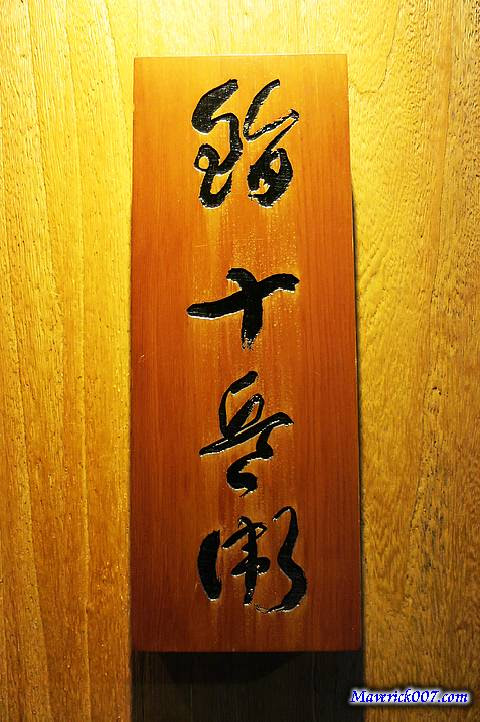 鮨十兵衛
Maverick007.com